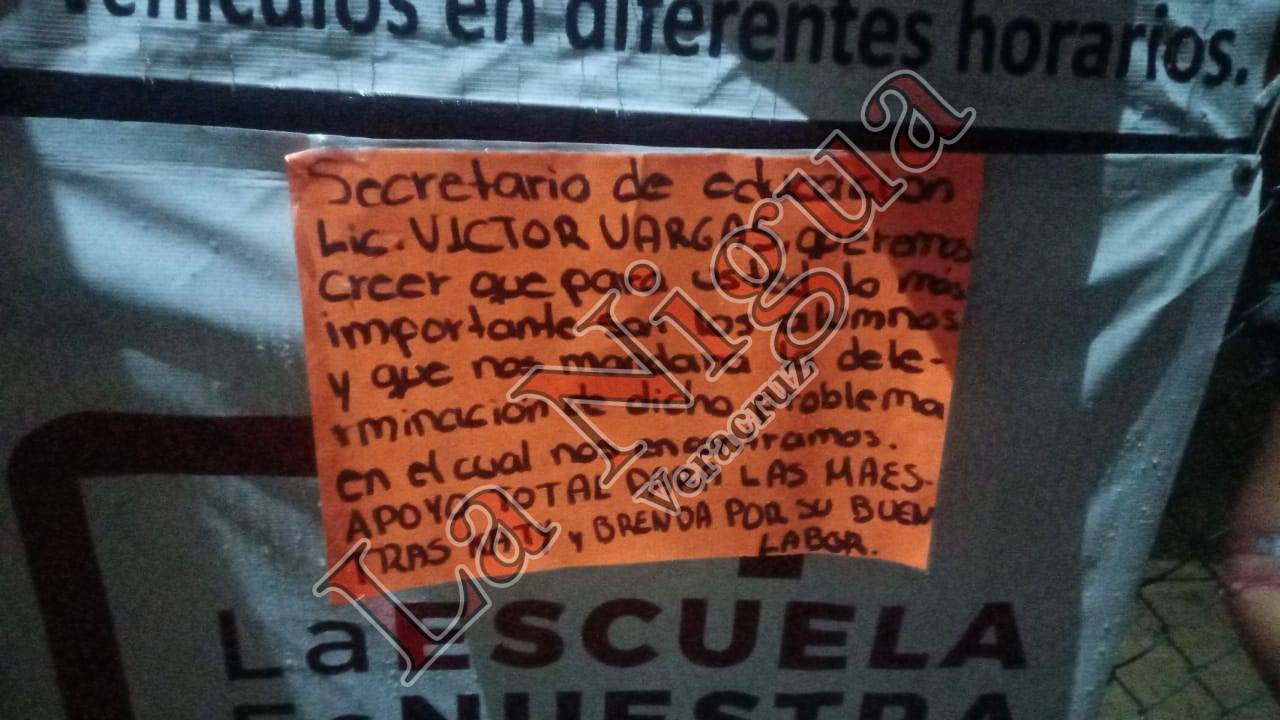 vehículos en diferentes horarios.
Secretario de educación
Lic. VICTOR VARGAS, queremos
creer que para usted lo más
importante son los alumnos
y que nos mandara la dete-
rminación de dicho problema
en el cual nos encontramos.
APOYO TOTAL PARA LAS MAES-
TRAS NATY y BRENDA POR SU BUEN
LABOR.
La Nigua
Veracruz
La ESCUELA
Es NUESTRA